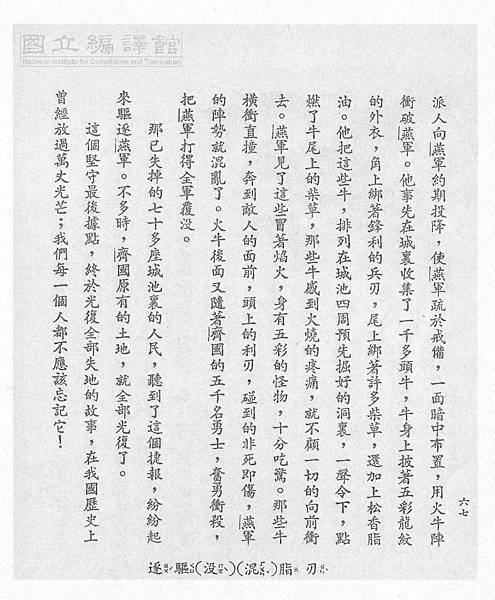 國立編譯館
National Institute for Compilation and Translation
派人向燕軍約期投降，使燕軍疏於戒備，一面暗中布置，用火牛陣
衝破燕軍。他事先在城裏收集了一千多頭牛，牛身上披著五彩龍紋
的外衣，角上綁著鋒利的兵刃，尾上綁著許多柴草，還加上松香脂
油。他把這些牛，排列在城池四周預先掘好的洞裏，一聲令下，點
燃了牛尾上的柴草，那些牛感到火燒的疼痛，就不顧一切的向前衝
去。燕軍見了這些冒著焰火，身有五彩的怪物，十分吃驚。那些牛
橫衝直撞，奔到敵人的面前，頭上的利刃，碰到的非死即傷，燕軍
的陣勢就混亂了。火牛後面又隨著齊國的五千名勇士，奮勇衝殺，
把燕軍打得全軍覆没。
那已失掉的七十多座城池裏的人民，聽到了這個捷報，紛紛起
來驅逐燕軍。不多時，齊國原有的土地，就全部光復了。
這個堅守最後據點，終於光復全部失地的故事，在我國歷史上
曾經放過萬丈光芒；我們每一個人都不應該忘記它！
六七
逐驅(没)(混)脂刃